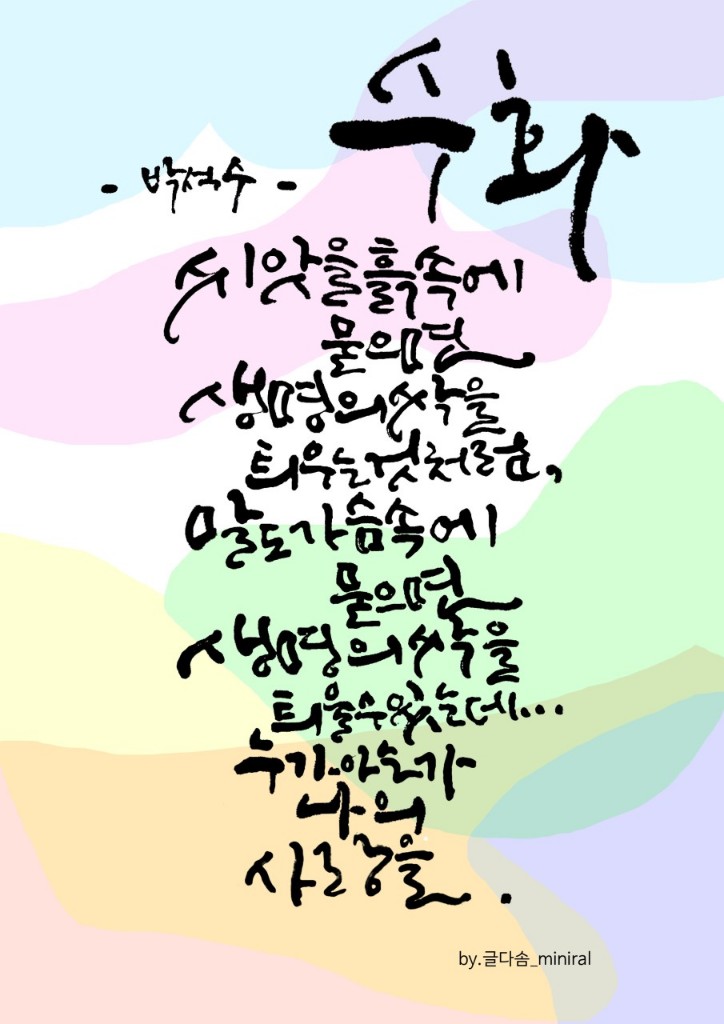 수화
- 박석수 -
씨앗을 흙 속에
물으면
생명의 싹을
틔우는 것처럼,
말도 가슴 속에
물으면
생명의 싹을
틔울 수 있는데...
누가 아는가
나의
사랑을.
by.글다솜_miniral